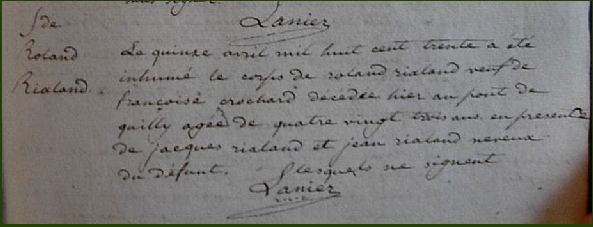 Lanier
S de
Roland
Rialand.
Le quinze avril mil huit cent trente a été
inhumé le corps de roland rialand veuf de
françoise crochard décédée hier au pont de
quilly agée de quatre vingt trois ans en présence
de jacques rialand et jean rialand neveux
du défunt. lesquels ne signent
Lanier